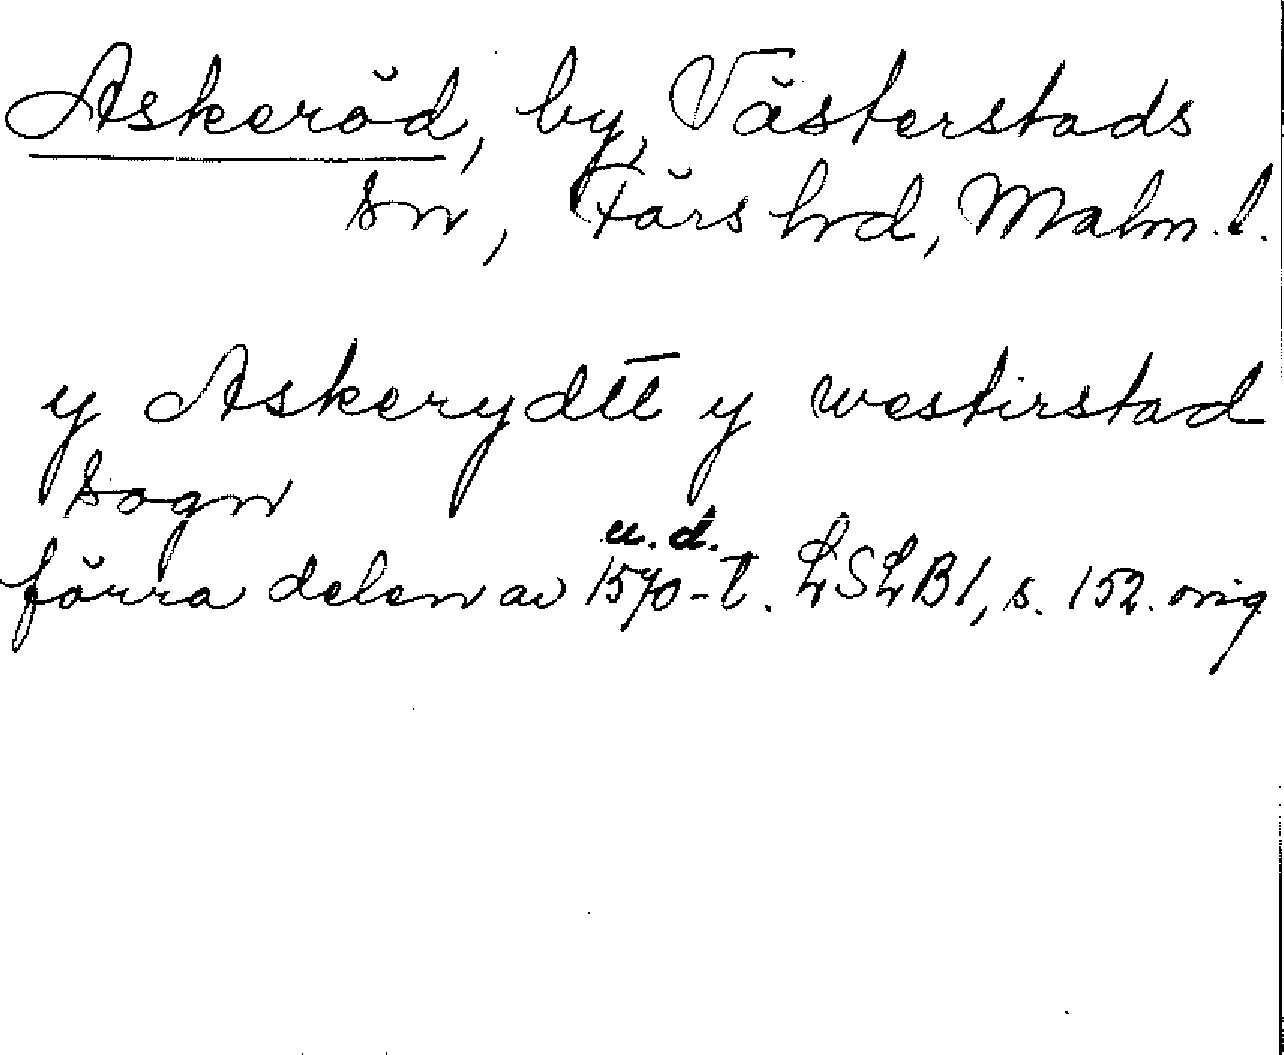 Askeröd, by, Västerstads
sn, Färs hrd, Malm. l.
y Askerydtt y westirstad
sogn
u. d.
förra delen av 1570-t. LSLB1, s. 152. orig